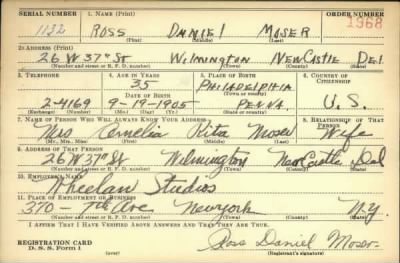 SERIAL NUMBER 1. NAME (Print) ORDER NUMBER
1132 ROSS DANIEL MOSER 1968
(First) (Middle) (Last)
2. ADDRESS (Print)
26 W 37th St Wilmington NewCastle Del
(Number and street or R. F. D. number) (Town) (County) (State)
3. TELEPHONE 4. AGE IN YEARS 5. PLACE OF BIRTH 6. COUNTRY OF CITIZENSHIP
35 PHILADELPHIA
DATE OF BIRTH (Town or county)
2-4169 9-19-1905 PENNA. U.S.
(Exchange) (Number) (Mo.) (Day) (Yr.) (State or country)
7. NAME OF PERSON WHO WILL ALWAYS KNOW YOUR ADDRESS 8. RELATIONSHIP OF THAT PERSON
Mrs Rita Moser Wife
(Mr., Mrs., Miss) (First) (Middle) (Last)
9. ADDRESS OF THAT PERSON
26 W 37th St Wilmington NewCastle Del
(Number and street or R. F. D. number) (Town) (County) (State)
10. EMPLOYER'S NAME
Wheelan Studios
11. PLACE OF EMPLOYMENT OR BUSINESS
370- 7th Ave New York N.Y.
(Number and street or R. F. D. number) (Town) (County) (State)
I AFFIRM THAT I HAVE VERIFIED ABOVE ANSWERS AND THAT THEY ARE TRUE.
REGISTRATION CARD Ross Daniel Moser
D. S. S. Form 1 (over) (Registrant's signature)